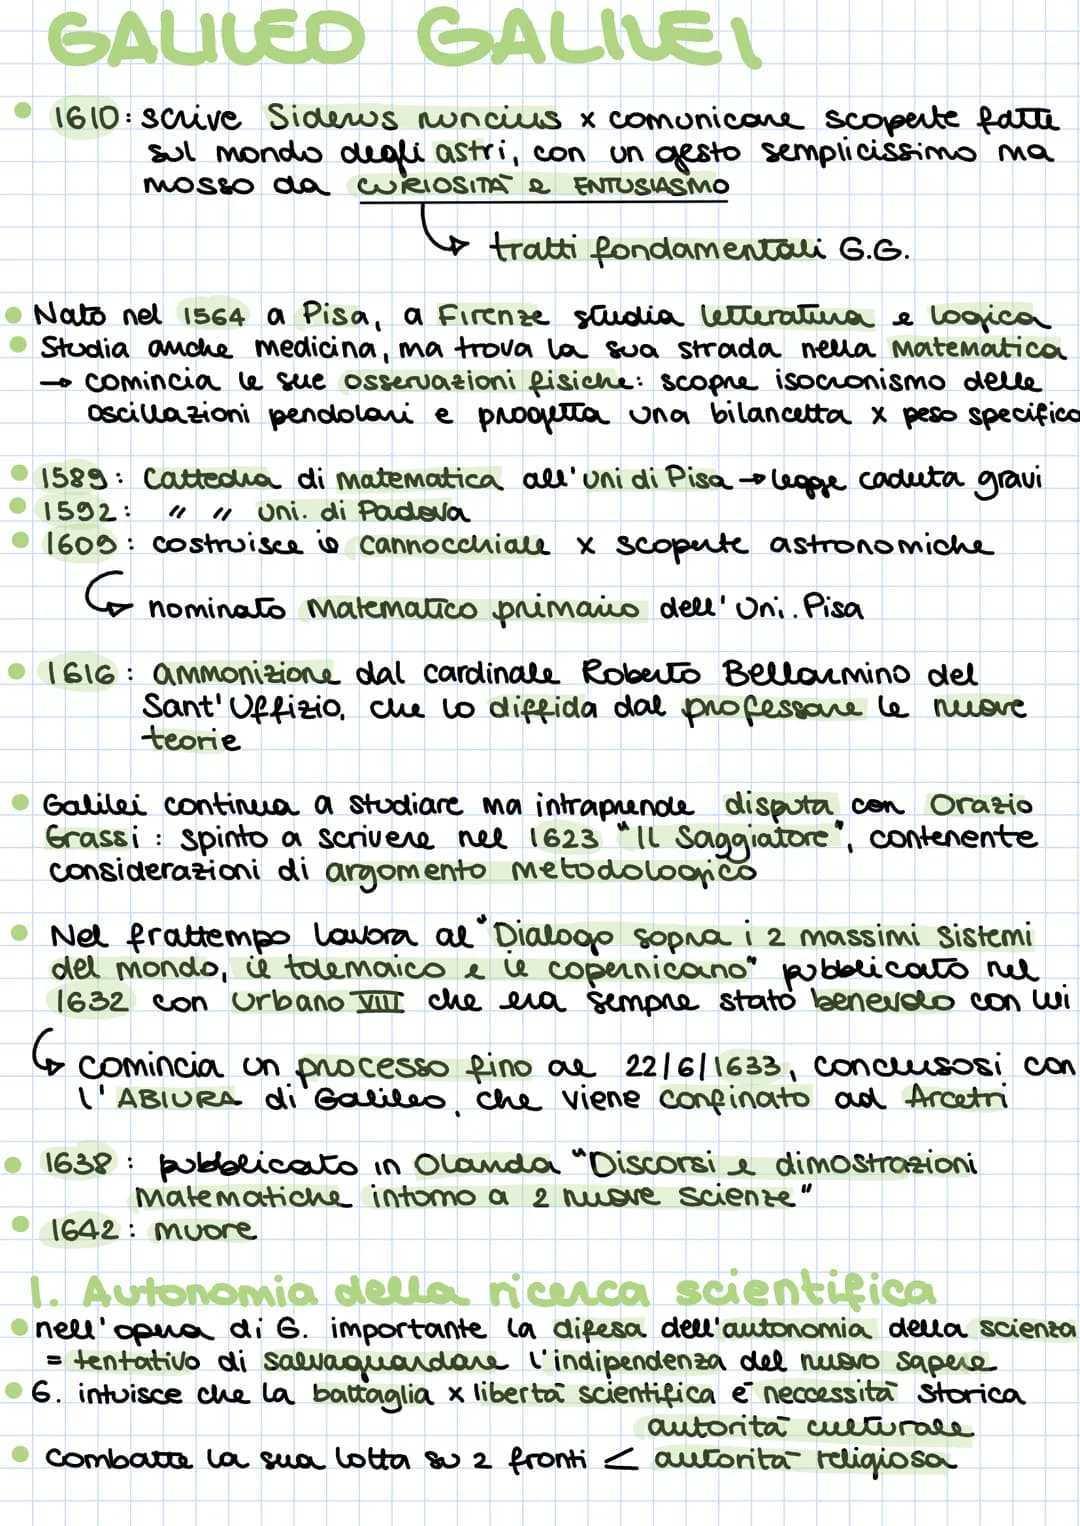 GALILEO GALILEI
1610: scrive Sidereus nuncius x comunicare scoperte fatte
sul mondo degli astri, con un gesto semplicissimo ma
mosso da CURIOSITÀ e ENTUSIASMO
tratti fondamentali G.G.
Nato nel 1564 a Pisa, a Firenze studia letteratura e logica
Studia anche medicina, ma trova la sua strada nella matematica
→ comincia le sue osservazioni fisiche: scopre isocronismo delle
oscillazioni pendolari e progetta una bilancetta x peso specifico
1589: Cattedra di matematica all'uni di Pisa → legge caduta gravi
1592: " " uni. di Padova
1609: costruisce il cannocchiale x scoperte astronomiche
nominato Matematico primario dell'Uni. Pisa
1616: ammonizione dal cardinale Roberto Bellarmino del
Sant'Uffizio, che lo diffida dal professare le nuove
teorie
Galilei continua a studiare ma intraprende disputa con Orazio
Grassi: spinto a scrivere nel 1623 "Il Saggiatore", contenente
considerazioni di argomento metodologico
Nel frattempo lavora al "Dialogo sopra i 2 massimi sistemi
del mondo, il tolemaico e il copernicano" pubblicato nel
1632 con Urbano VIII che era sempre stato benevolo con lui
comincia un processo fino al 22/6/1633, conclusosi con
l'ABIURA di Galileo, che viene confinato ad Arcetri
1638: pubblicato in Olanda "Discorsi e dimostrazioni
Matematiche intorno a 2 nuove scienze"
1642: muore
1. Autonomia della ricerca scientifica
nell'opera di G. importante la difesa dell'autonomia della scienza
= tentativo di salvaguardare l'indipendenza del nuovo sapere
G. intuisce che la battaglia x libertà scientifica è neccessità storica
autorità culturale
Combatte la sua lotta su 2 fronti < autorità religiosa